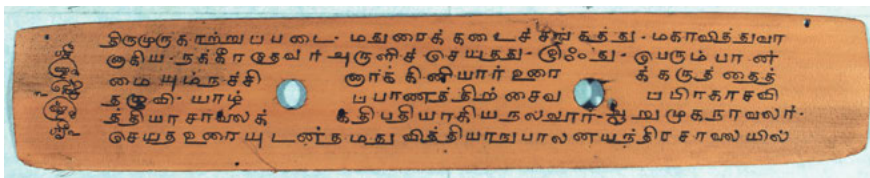 திருமுருகாற்றுப்படை - மதுரைக் கடைச்சங்கத்து - மகாவித்துவா
னாகிய - நக்கீரதேவர் அருளிச் செய்தது - இஃது - பெரும் பான்
மையும் நச்சி னார்க் கினியார் உரை க் கருத்தைத்
தழுவி - யாழ் ப்பாணத்திற் சைவ ப்பிரகாசவி
த்தியாசாலைக் கதிபதியாகிய நல்லூர் - ஆறுமுகநாவலர் -
செய்த உரையுடன் தமது வித்தியாநுபாலனயந்திர சாலையில்